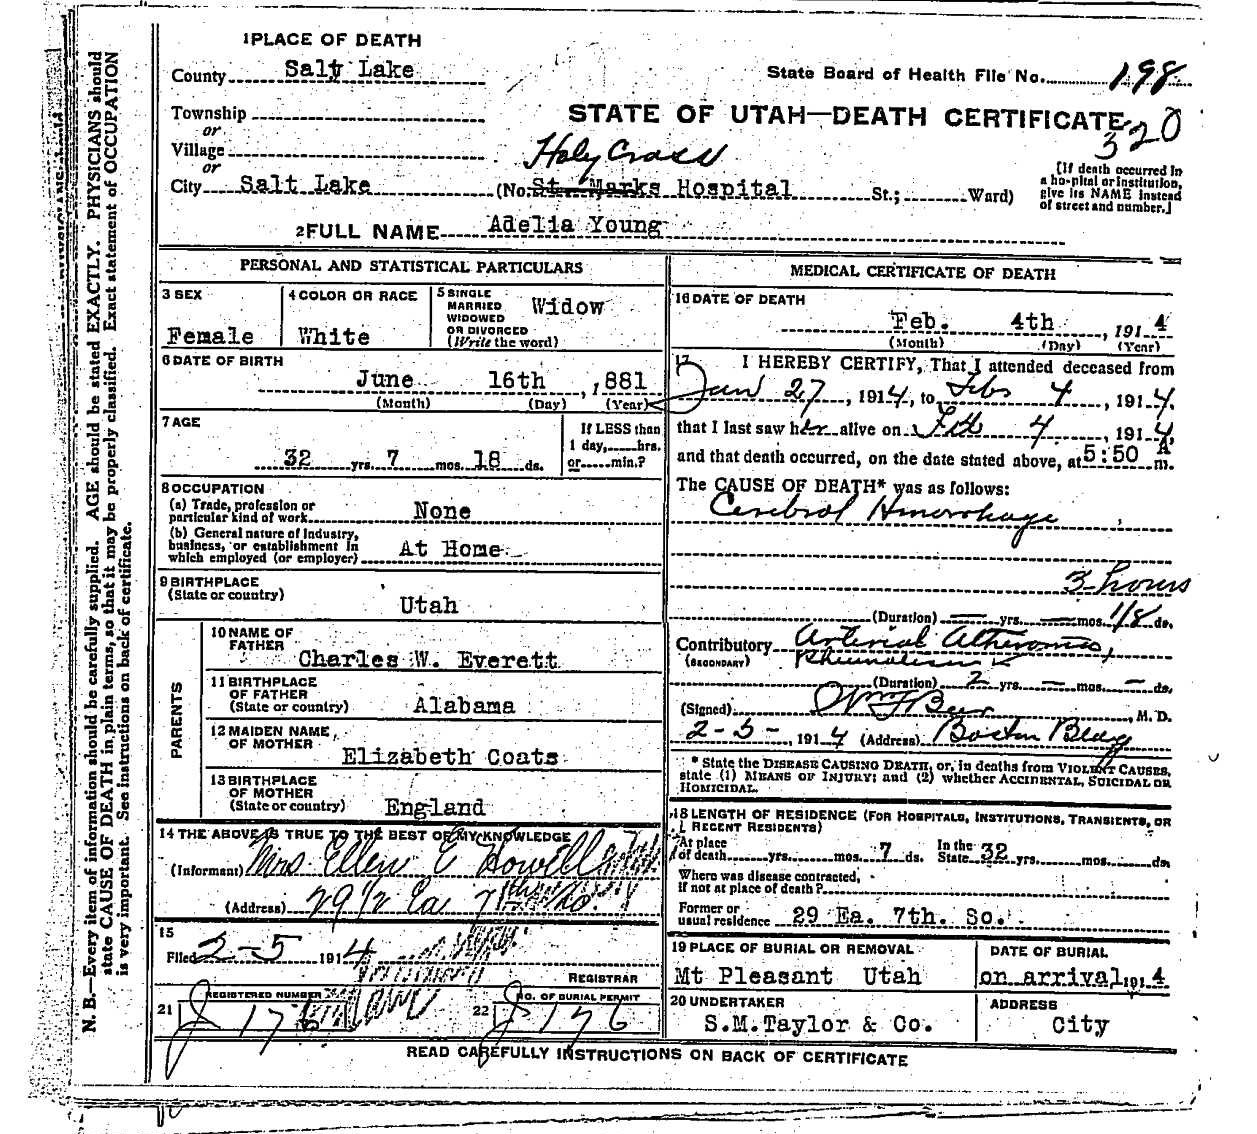 1 PLACE OF DEATH
County Salt Lake
State Board of Health File No. 198
Township
or
Village
or
STATE OF UTAH—DEATH CERTIFICATE
320
Holy Cross
City Salt Lake (No. St. Marks Hospital St.; Ward)
[If death occurred in a hospital or institution, give its NAME instead of street and number.]
2 FULL NAME Adelia Young
PERSONAL AND STATISTICAL PARTICULARS
3 SEX
Female
4 COLOR OR RACE
White
5 SINGLE
MARRIED
WIDOWED
OR DIVORCED
(Write the word)
Widow
6 DATE OF BIRTH
June 16th, 1881
(Month) (Day) (Year)
7 AGE
32 yrs. 7 mos. 18 ds.
If LESS than
1 day, hrs.
or min.?
8 OCCUPATION
(a) Trade, profession or
particular kind of work None
(b) General nature of industry,
business, or establishment in
which employed (or employer) At Home
9 BIRTHPLACE
(State or country)
Utah
PARENTS
10 NAME OF
FATHER
Charles W. Everett
11 BIRTHPLACE
OF FATHER
(State or country) Alabama
12 MAIDEN NAME
OF MOTHER
Elizabeth Coats
13 BIRTHPLACE
OF MOTHER
(State or country) England
14 THE ABOVE IS TRUE TO THE BEST OF MY KNOWLEDGE
(Informant) Mrs Ellen E Howell
(Address) 29 1/2 Ea. 7th So.
15
Filed 2-5 1914
REGISTRAR
21 REGISTERED NUMBER
J 176
22 NO. OF BURIAL PERMIT
J 176
MEDICAL CERTIFICATE OF DEATH
16 DATE OF DEATH
Feb. 4th, 1914
(Month) (Day) (Year)
17 I HEREBY CERTIFY, That I attended deceased from
Jan 27, 1914, to Feb 4, 1914,
that I last saw her alive on Feb 4, 1914,
and that death occurred, on the date stated above, at 5:50 A m.
The CAUSE OF DEATH* was as follows:
Cerebral Hmorrhage
3 hours
(Duration) — yrs. — mos. 1/8 ds.
Contributory
(SECONDARY)
Arterial Atheroma,
Rheumatism
(Duration) 2 yrs. — mos. — ds.
(Signed) M. D.
2-5-, 1914 (Address) Boston Bldg
* State the DISEASE CAUSING DEATH, or, in deaths from VIOLENT CAUSES,
state (1) MEANS OF INJURY; and (2) whether ACCIDENTAL, SUICIDAL OR
HOMICIDAL.
18 LENGTH OF RESIDENCE (FOR HOSPITALS, INSTITUTIONS, TRANSIENTS, OR
RECENT RESIDENTS)
At place
of death yrs. mos. 7 ds. In the
State 32 yrs. mos. ds.
Where was disease contracted,
if not at place of death?
Former or
usual residence 29 Ea. 7th. So.
19 PLACE OF BURIAL OR REMOVAL
Mt Pleasant Utah
DATE OF BURIAL
on arrival, 1914
20 UNDERTAKER
S.M.Taylor & Co.
ADDRESS
City
READ CAREFULLY INSTRUCTIONS ON BACK OF CERTIFICATE
N. B.—Every item of information should be carefully supplied. AGE should be stated EXACTLY. PHYSICIANS should
state CAUSE OF DEATH in plain terms, so that it may be properly classified. Exact statement of OCCUPATION
is very important. See instructions on back of certificate.